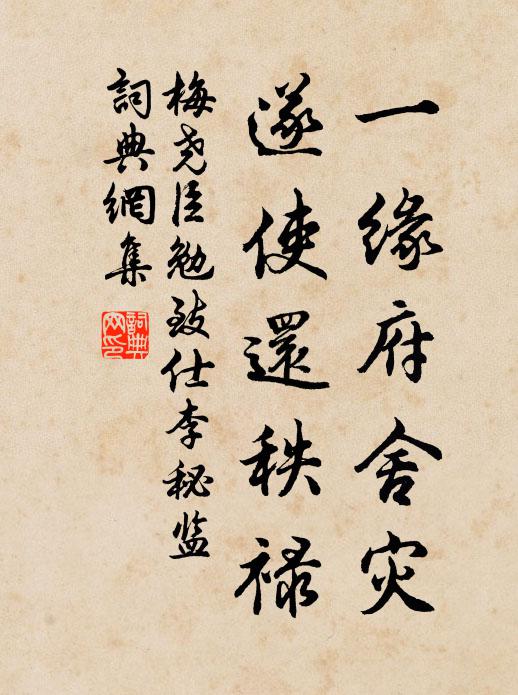 一缘府舍灾
遂使還秩禄
梅尧臣勉致仕李秘监
詞典網集
詞典网印